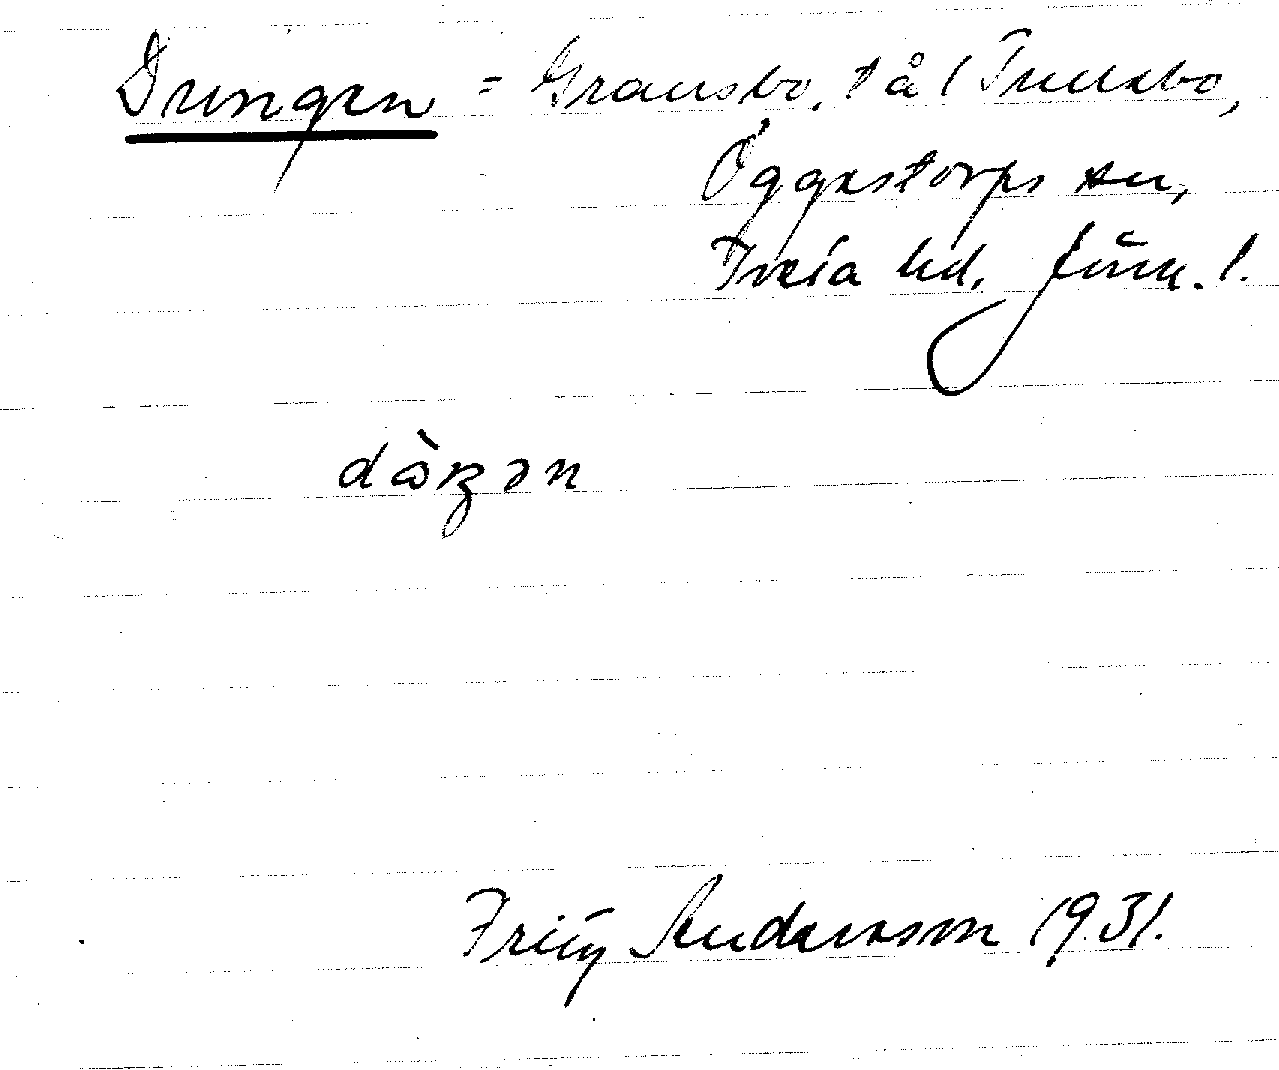 Dungen = Gransbo, tå / Trullsbo,
Öggestorps sn,
Tveta hd. Jönk. l.
dɷ̀ŋən
Fritz Andersson 1931.